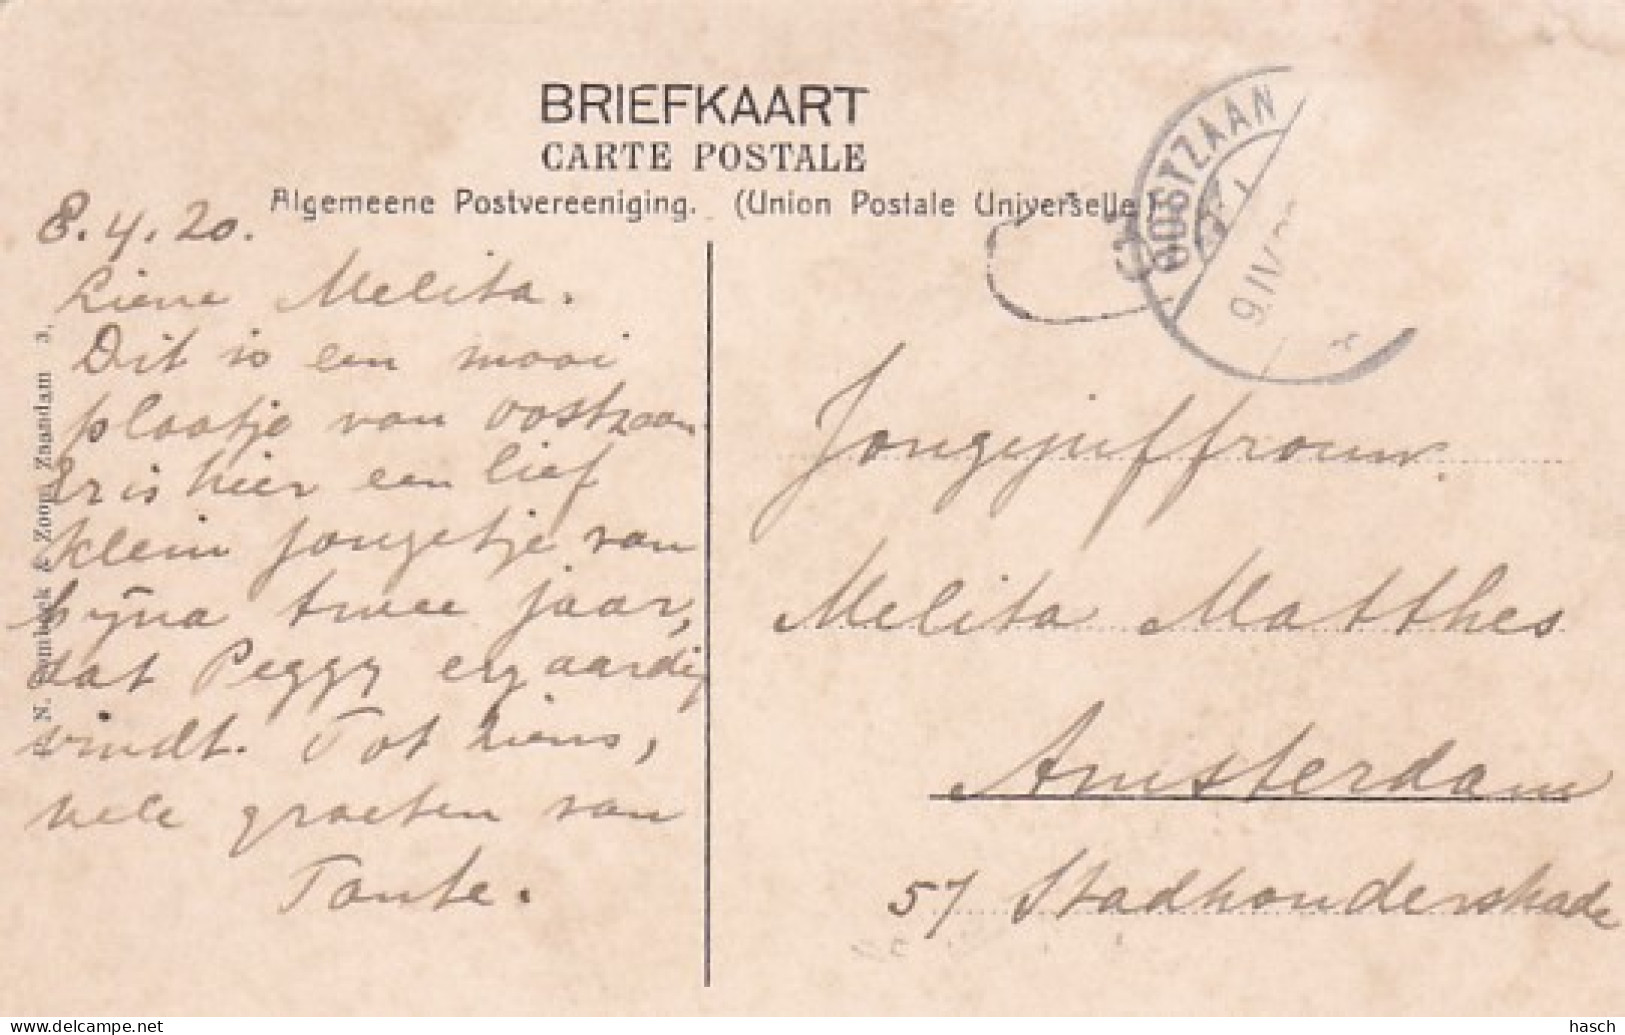 BRIEFKAART
CARTE POSTALE
Algemeene Postvereeniging. (Union Postale Universelle)
OOSTZAAN
9.IV.
8.4.20.
Lieve Melita.
Dit is een mooi
plaatje van Oostzaan
Er is hier een lief
klein jongetje van
bijna twee jaar,
dat Peggy erg aardig
vindt. Tot ziens,
vele groeten van
Tante.
N. & Zoon, Zaandam 3.
Jongejuffrouw.
Melita Matthes
Amsterdam
57 Stadhouderskade
delcampe.net
hasch